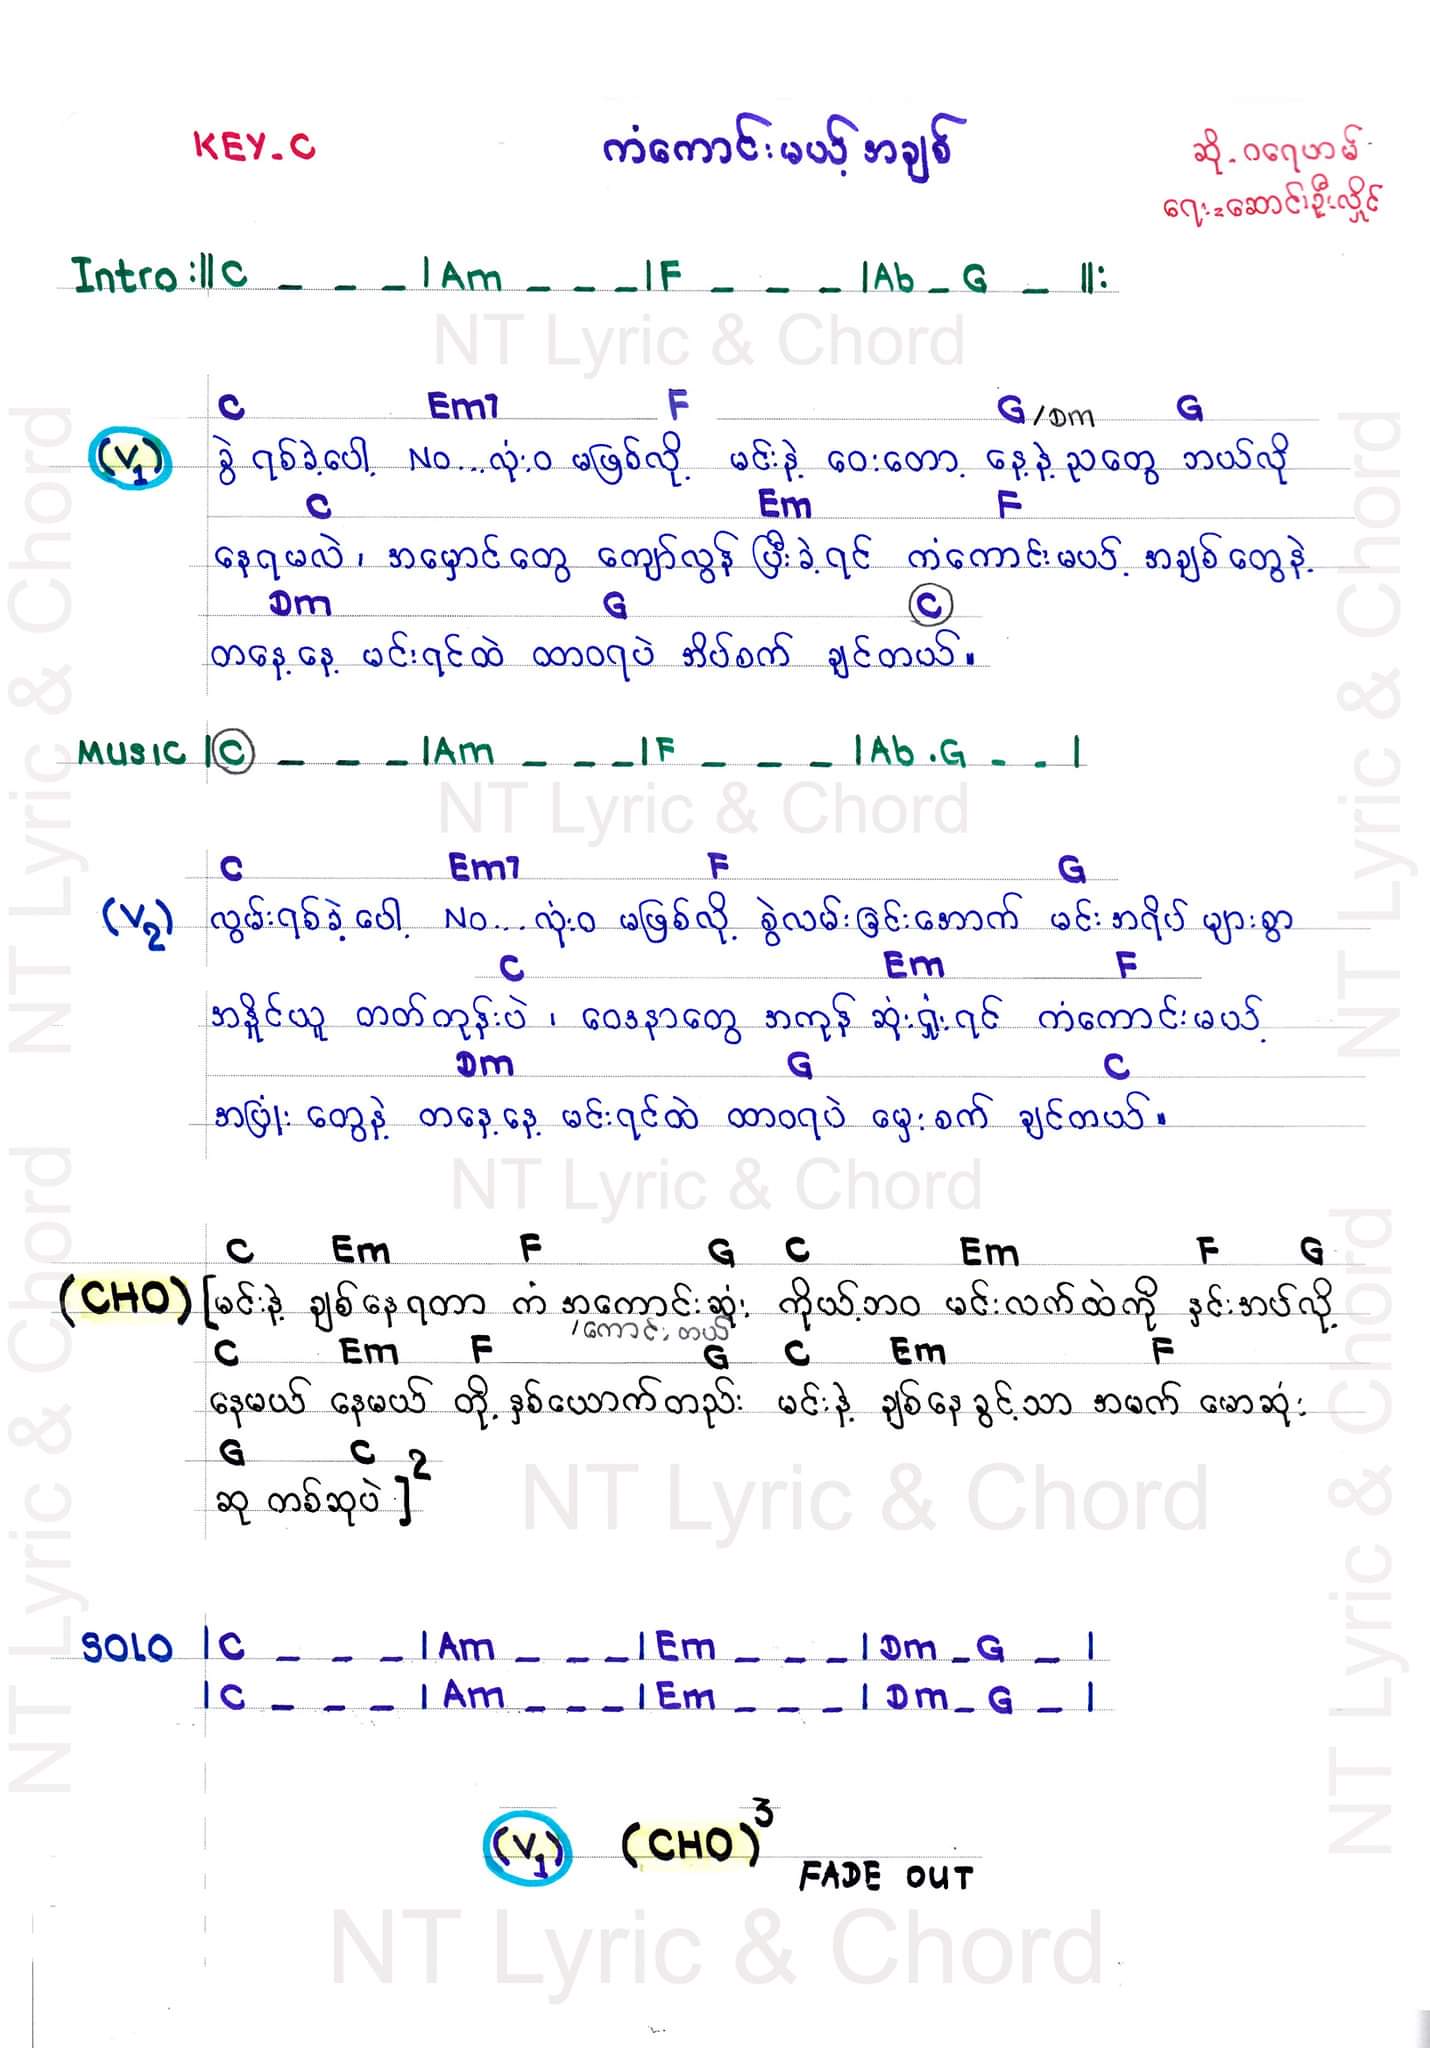 KEY-C ကံကောင်းမယ့် အချစ် ဆို-ဂရေဟမ်
ရေး-ဆောင်းဦးလှိုင်
Intro :||C _ _ _ |Am _ _ _ |F _ _ _ |Ab _ G _ ||:
NT Lyric & Chord
C Em7 F G/Dm G
(V1) ခွဲ ရစ်ခဲ့ပေါ့ No...လုံးဝ မဖြစ်လို့ မင်းနဲ့ ဝေးတော့ နေ့နဲ့ညတွေ ဘယ်လို
C Em F
နေရမလဲ၊ အမှောင်တွေ ကျော်လွန် ပြီးခဲ့ရင် ကံကောင်းမယ့် အချစ်တွေနဲ့
Dm G C
တနေ့နေ့ မင်းရင်ထဲ ထာဝရပဲ အိပ်စက် ချင်တယ်။
MUSIC |C _ _ _ |Am _ _ _ |F _ _ _ |Ab . G - - |
NT Lyric & Chord
C Em7 F G
(V2) လွမ်းရစ်ခဲ့ပေါ့ No...လုံးဝ မဖြစ်လို့ စွဲလမ်းခြင်းအောက် မင်းအရိပ် များစွာ
C Em F
အနှိုင်ယူ တတ်တုန်းပဲ၊ ဝေဒနာတွေ အကုန် ဆုံးရှုံးရင် ကံကောင်းမယ့်
Dm G C
အပြုံး တွေနဲ့ တနေ့နေ့ မင်းရင်ထဲ ထာဝရပဲ မှေးစက် ချင်တယ်။
NT Lyric & Chord
C Em F G C Em F G
(CHO) [မင်းနဲ့ ချစ်နေရတာ ကံ အကောင်းဆုံး ကိုယ့်ဘဝ မင်းလက်ထဲကို နှင်းအပ်လို့
/ကောင်းတယ်
C Em F G C Em F
နေမယ် နေမယ် တို့ နှစ်ယောက်တည်း မင်းနဲ့ ချစ်နေခွင့်သာ အမက် မောဆုံး
G C
ဆု တစ်ဆုပဲ ]2
NT Lyric & Chord
SOLO |C _ _ _ |Am _ _ _ |Em _ _ _ |Dm _ G _ |
|C _ _ _ |Am _ _ _ |Em _ _ _ |Dm _ G _ |
(V1) (CHO)3
FADE OUT
NT Lyric & Chord
NT Lyric & Chord
NT Lyric & Chord
NT Lyric & Chord
NT Lyric & Chord